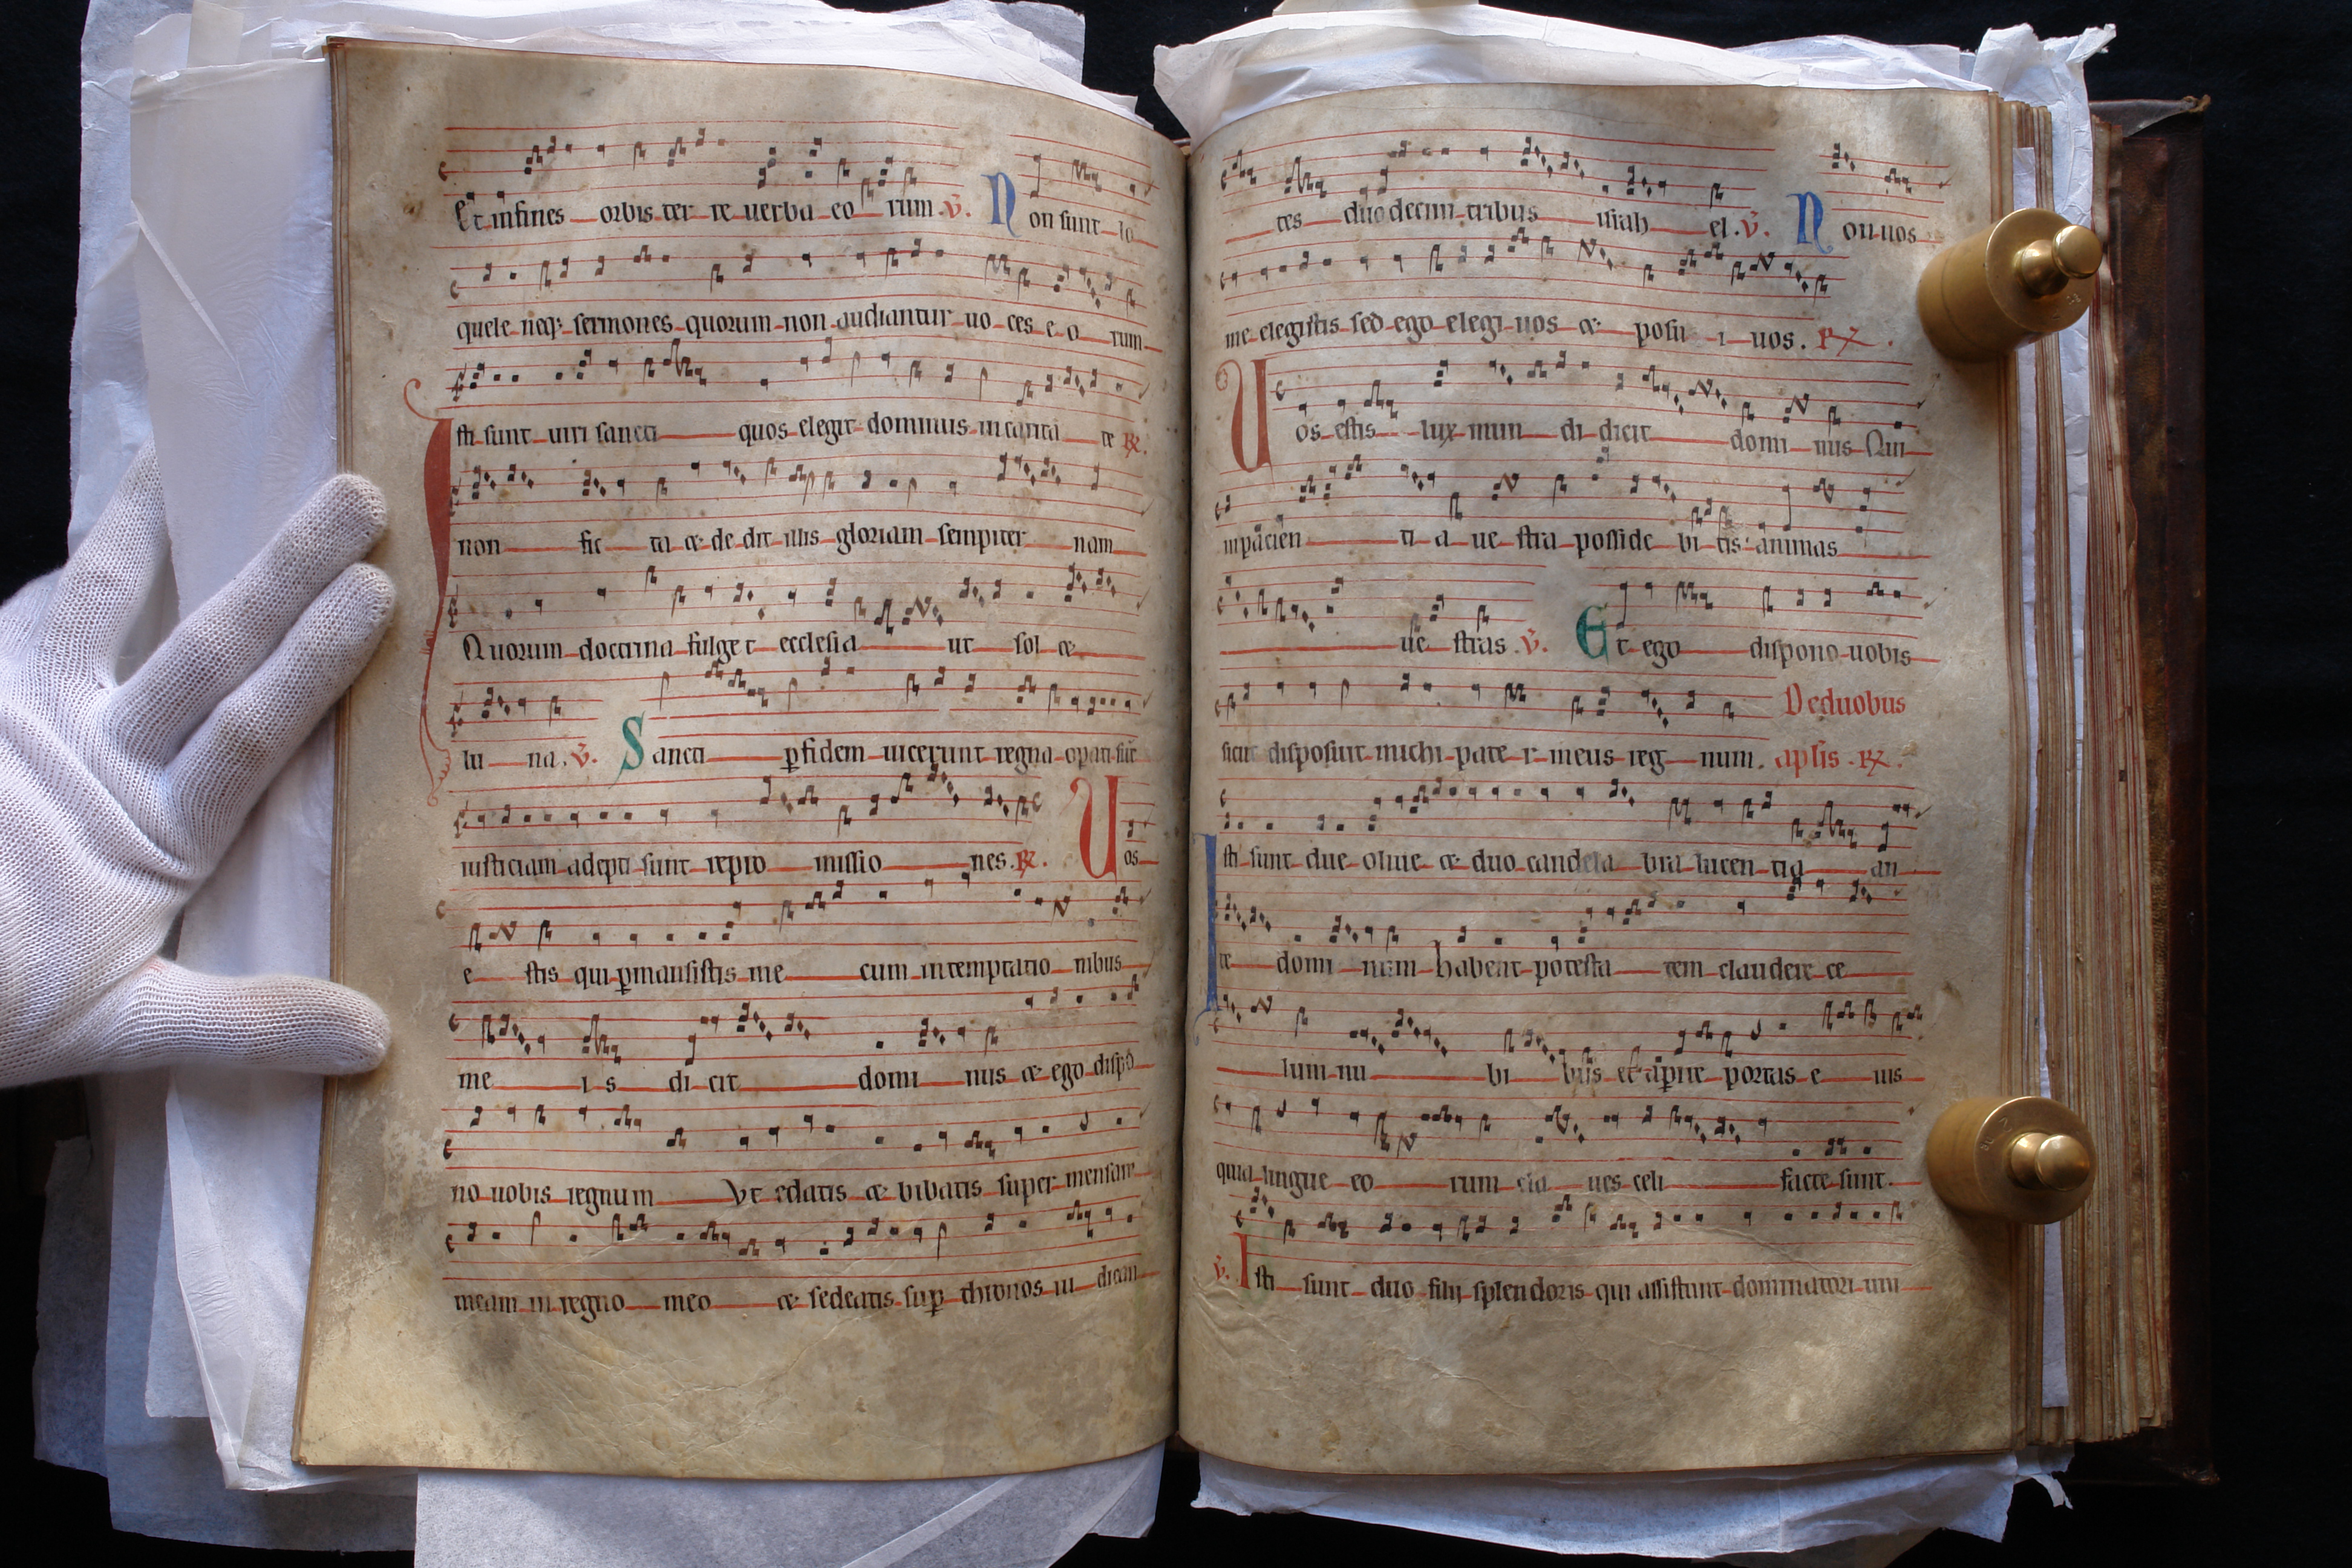 Et infines orbis ter re uerba eo rum. v̄. Non sunt lo
quele neq; sermones quorum non audiantur uo ces e o rum
Isti sunt uiri sancti quos elegit dominus in carita te R̷.
non fic ta & de dit illis gloriam sempiter nam
Quorum doctrina fulget ecclesia ut sol &
lu na. v̄. Sancti ꝑ fidem uicerunt regna opati sūt
iusticiam adepti sunt repro missio nes. R̷. Uos
e stis qui ꝑmansistis me cum in temptatio nibus
me i s di cit domi nus & ego dispo
no uobis regnum Vt edatis & bibatis super mensam
meam in regno meo & sedeatis suꝑ thronos iu dican
tes duodecim tribus israh el. v̄. Non uos
me elegistis sed ego elegi uos & posu i uos. R̷.
Uos estis lux mun di dicit domi nus Qui
inpacien ti a ue stra posside bi tis animas
ue stras. v̄. Et ego dispono uobis
sicut disposuit michi pate r meus reg num. De duobus apl̄is. R̷.
Isti sunt due oliue & duo candela bra lucen tia an
te domi num habent potesta tem claudere ce
lum nu bi bus et aꝑire portas e ius
quia lingue eo rum cla ues celi facte sunt.
v̄. Isti sunt duo filij splendoris qui assistunt dominatori uni